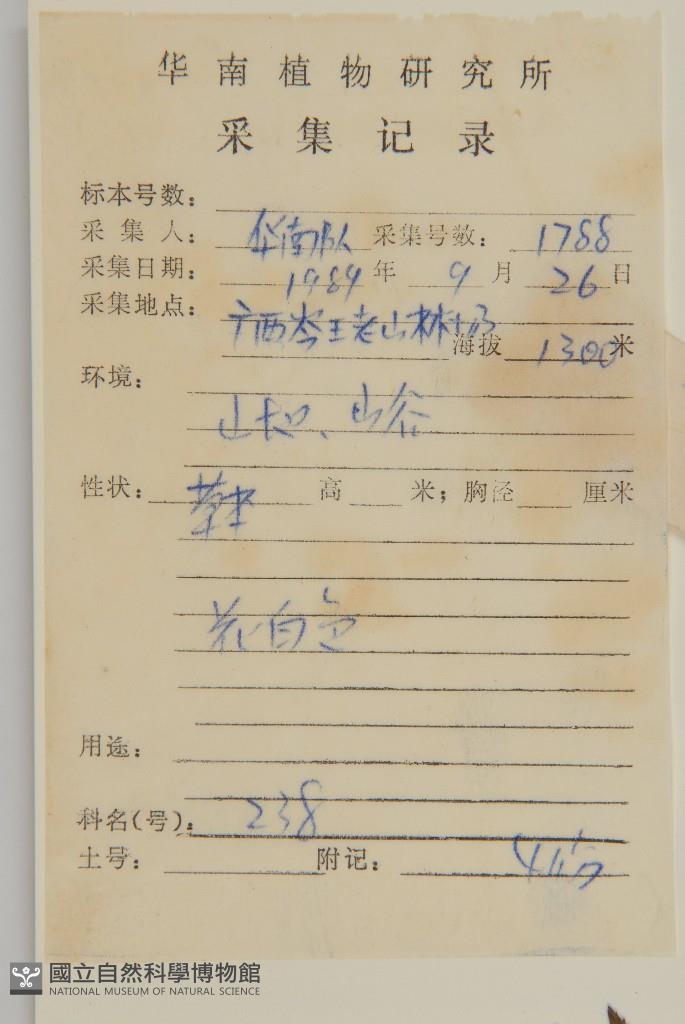 华南植物研究所
采集记录
标本号数：
采集人：华南队 采集号数：1788
采集日期：1989年9月26日
采集地点：广西岑王老山林场
海拔1300米
环境：
山地、山谷
性状：草本 高 米；胸径 厘米
花白色
用途：
科名(号)：238
土号： 附记：
國立自然科學博物館
NATIONAL MUSEUM OF NATURAL SCIENCE